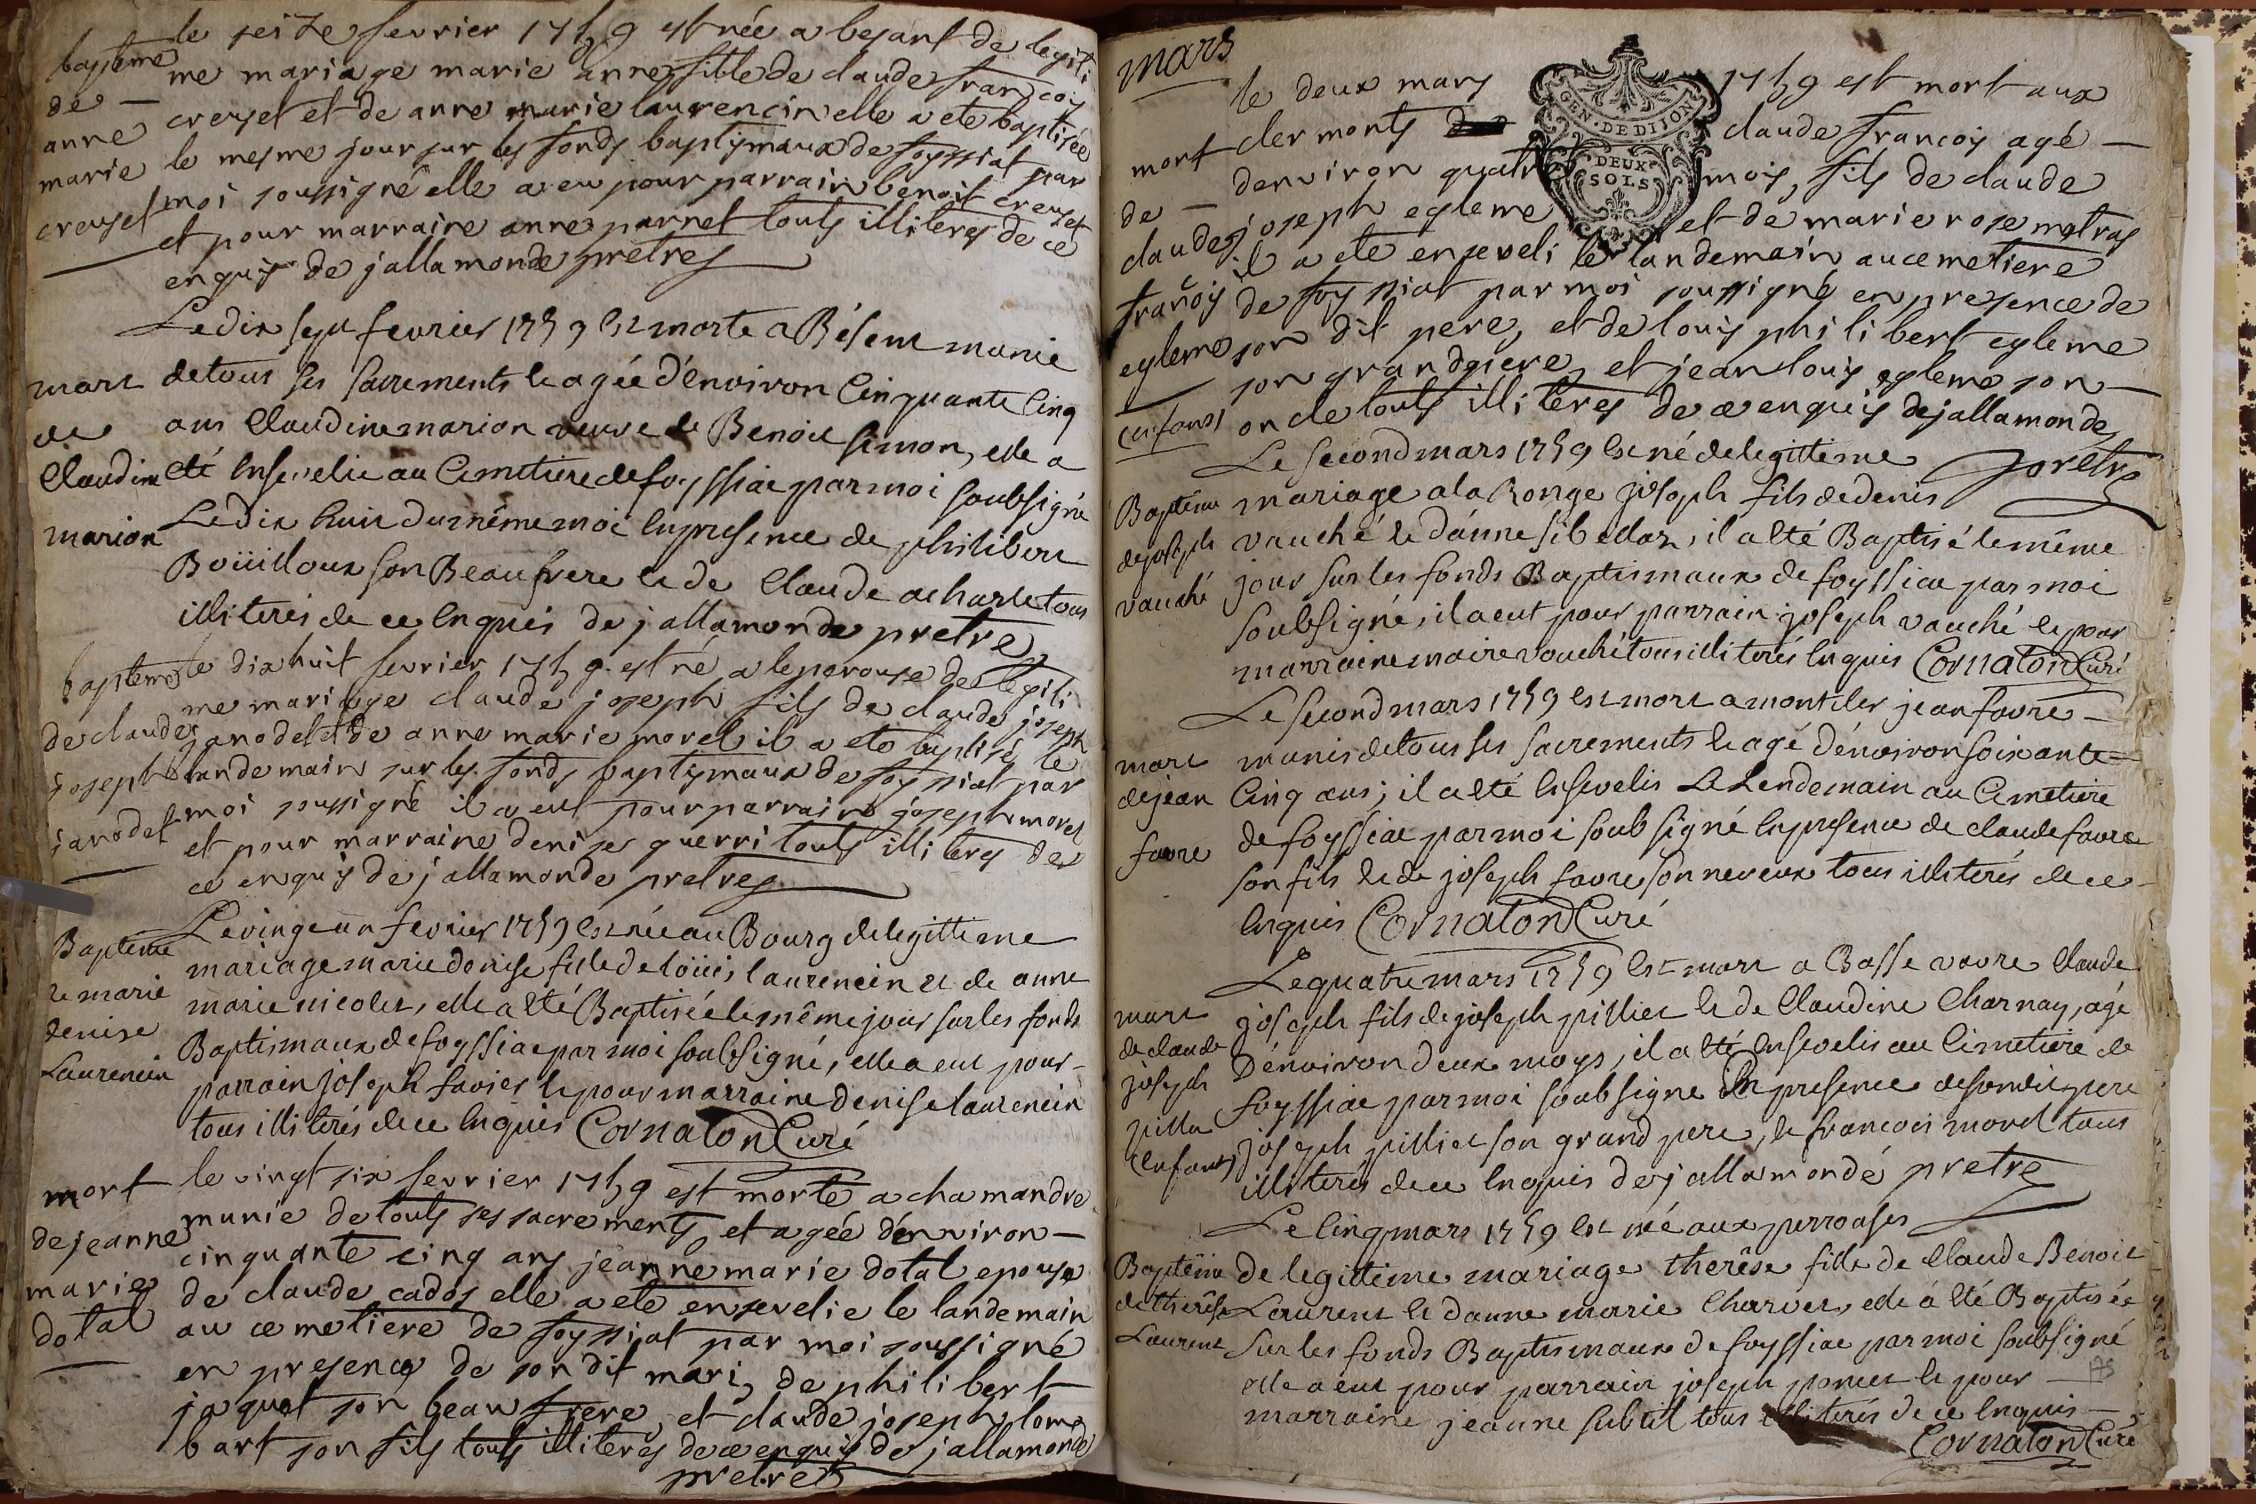 le seize fevrier 1759 est née a besant de legiti
me mariage marie anne fille de claude francois
creuset et de anne marie laurencin elle a ete baptisée
le mesme jour sur les fonds baptismaux de foyssiat par
moi soussigné elle a eu pour parrain benoit creuset
et pour marraine anne parnet touts illiteres de ce
enquis dejallamonde pretre
bapteme
de —
anne
marie
creuset
Le dix sept fevrier 1759 est morte a Bésent munie
de tous ses sacrements et agée d'environ Cinquante Cinq
ans Claudine marion veuve de Benoit Simon, elle a
eté Ensevelie au Cimetiere de foyssiat par moi soubsigné
Le dix huit du même moi En presence de philibert
Boüilloux son Beaufrere et de Claude acharle tous
illiterés de ce Enquis dejallamonde pretre
mort
de
Claudine
marion
le dix huit fevrier 1759 est né a leperouse de legiti
me mariage claude joseph fils de claude joseph
janodet et de anne marie morel il a ete baptisé le
landemain sur les fonds baptismaux de foyssiat par
moi soussigné il a eut pour parrain joseph morel
et pour marraine denise guerri touts illiteres de
ce enquis dejallamonde pretre
bapteme
de claude
joseph
janodet
Le vingt un fevrier 1759 est née au Bourg de legittime
mariage marie denise fille de loüis laurencin et de anne
marie nicolet, elle a eté Baptisée le même jour sur les fonds
Baptismaux de foyssiat par moi soubsigné, elle a eut pour
parrain joseph favier et pour marraine denise laurencin
tous illiterés de ce Enquis Cornaton Curé
Bapteme
de marie
denise
Laurencin
le vingt six fevrier 1759 est morte a chamandre
munie de touts ses sacrements, et agée d'environ —
cinquante cinq ans jeanne marie dotal epouse
de claude cados elle a ete ensevelie le landemain
au cemetiere de foyssiat par moi soussigné
en presence de son dit mari, de philibert
jaquet son beau frere, et claude joseph lom
bart son fils touts illiteres de ce enquis dejallamonde
pretre
mort
de jeanne
marie
dotal
mars
le deux mars 1759 est mort aux
clermonts claude francois agé —
denviron quatre mois, fils de claude
joseph egleme et de marie rose metras
il a ete enseveli le landemain au cemetiere
de foyssiat par moi soussigné en presence de
son dit pere, et de louis philibert egleme
son grandpere, et jean louis egleme son —
oncle touts illiteres de ce enquis dejallamonde
pretre
GEN·DE DIJON
DEUX
SOLS
mort
de —
claude
francois
egleme
(enfant)
Le second mars 1759 est né de legittime
mariage a la Ronge joseph fils de denis
vauché et d'anne sibellas, il a eté Baptisé le même
jour sur les fonds Baptismaux de foyssiat par moi
soubsigné, il a eut pour parrain joseph vauché et pour
marraine maire vauché tous illiterés Enquis Cornaton Curé
Bapteme
de joseph
vauché
Le second mars 1759 est mort a montcler jean favre —
munis de tous ses sacrements et agé d'environ soixante
Cinq ans, il a eté Ensevelis Le Lendemain au Cimetiere
de foyssiat par moi soubsigné En presence de claude favre
son fils et de joseph favre son neveux tous illiterés de ce
Enquis Cornaton Curé
mort
de jean
favre
Le quatre mars 1759 est mort a Basse vavre Claude
joseph fils de joseph pilliet et de Claudine Charnay, agé
D'environ deux moys, il a eté Ensevelis au Cimetiere de
foyssiat par moi soubsigné En presence de son dit pere
joseph pilliet son grand pere, et francois morel tous
illiterés de ce Enquis dejallamondé pretre
mort
de claude
joseph
pillia
(enfant)
Le Cinq mars 1759 est née aux perrouses
de legittime mariage therêse fille de Claude Benoit
Laurent et d'anne marie Charvet, elle a eté Baptisée
sur les fonds Baptismaux de foyssiat par moi soubsigné
elle a eut pour parrain joseph poncet et pour —
marraine jeanne subtil tous illiterés de ce Enquis —
Cornaton Curé
Baptême
de therêse
Laurent